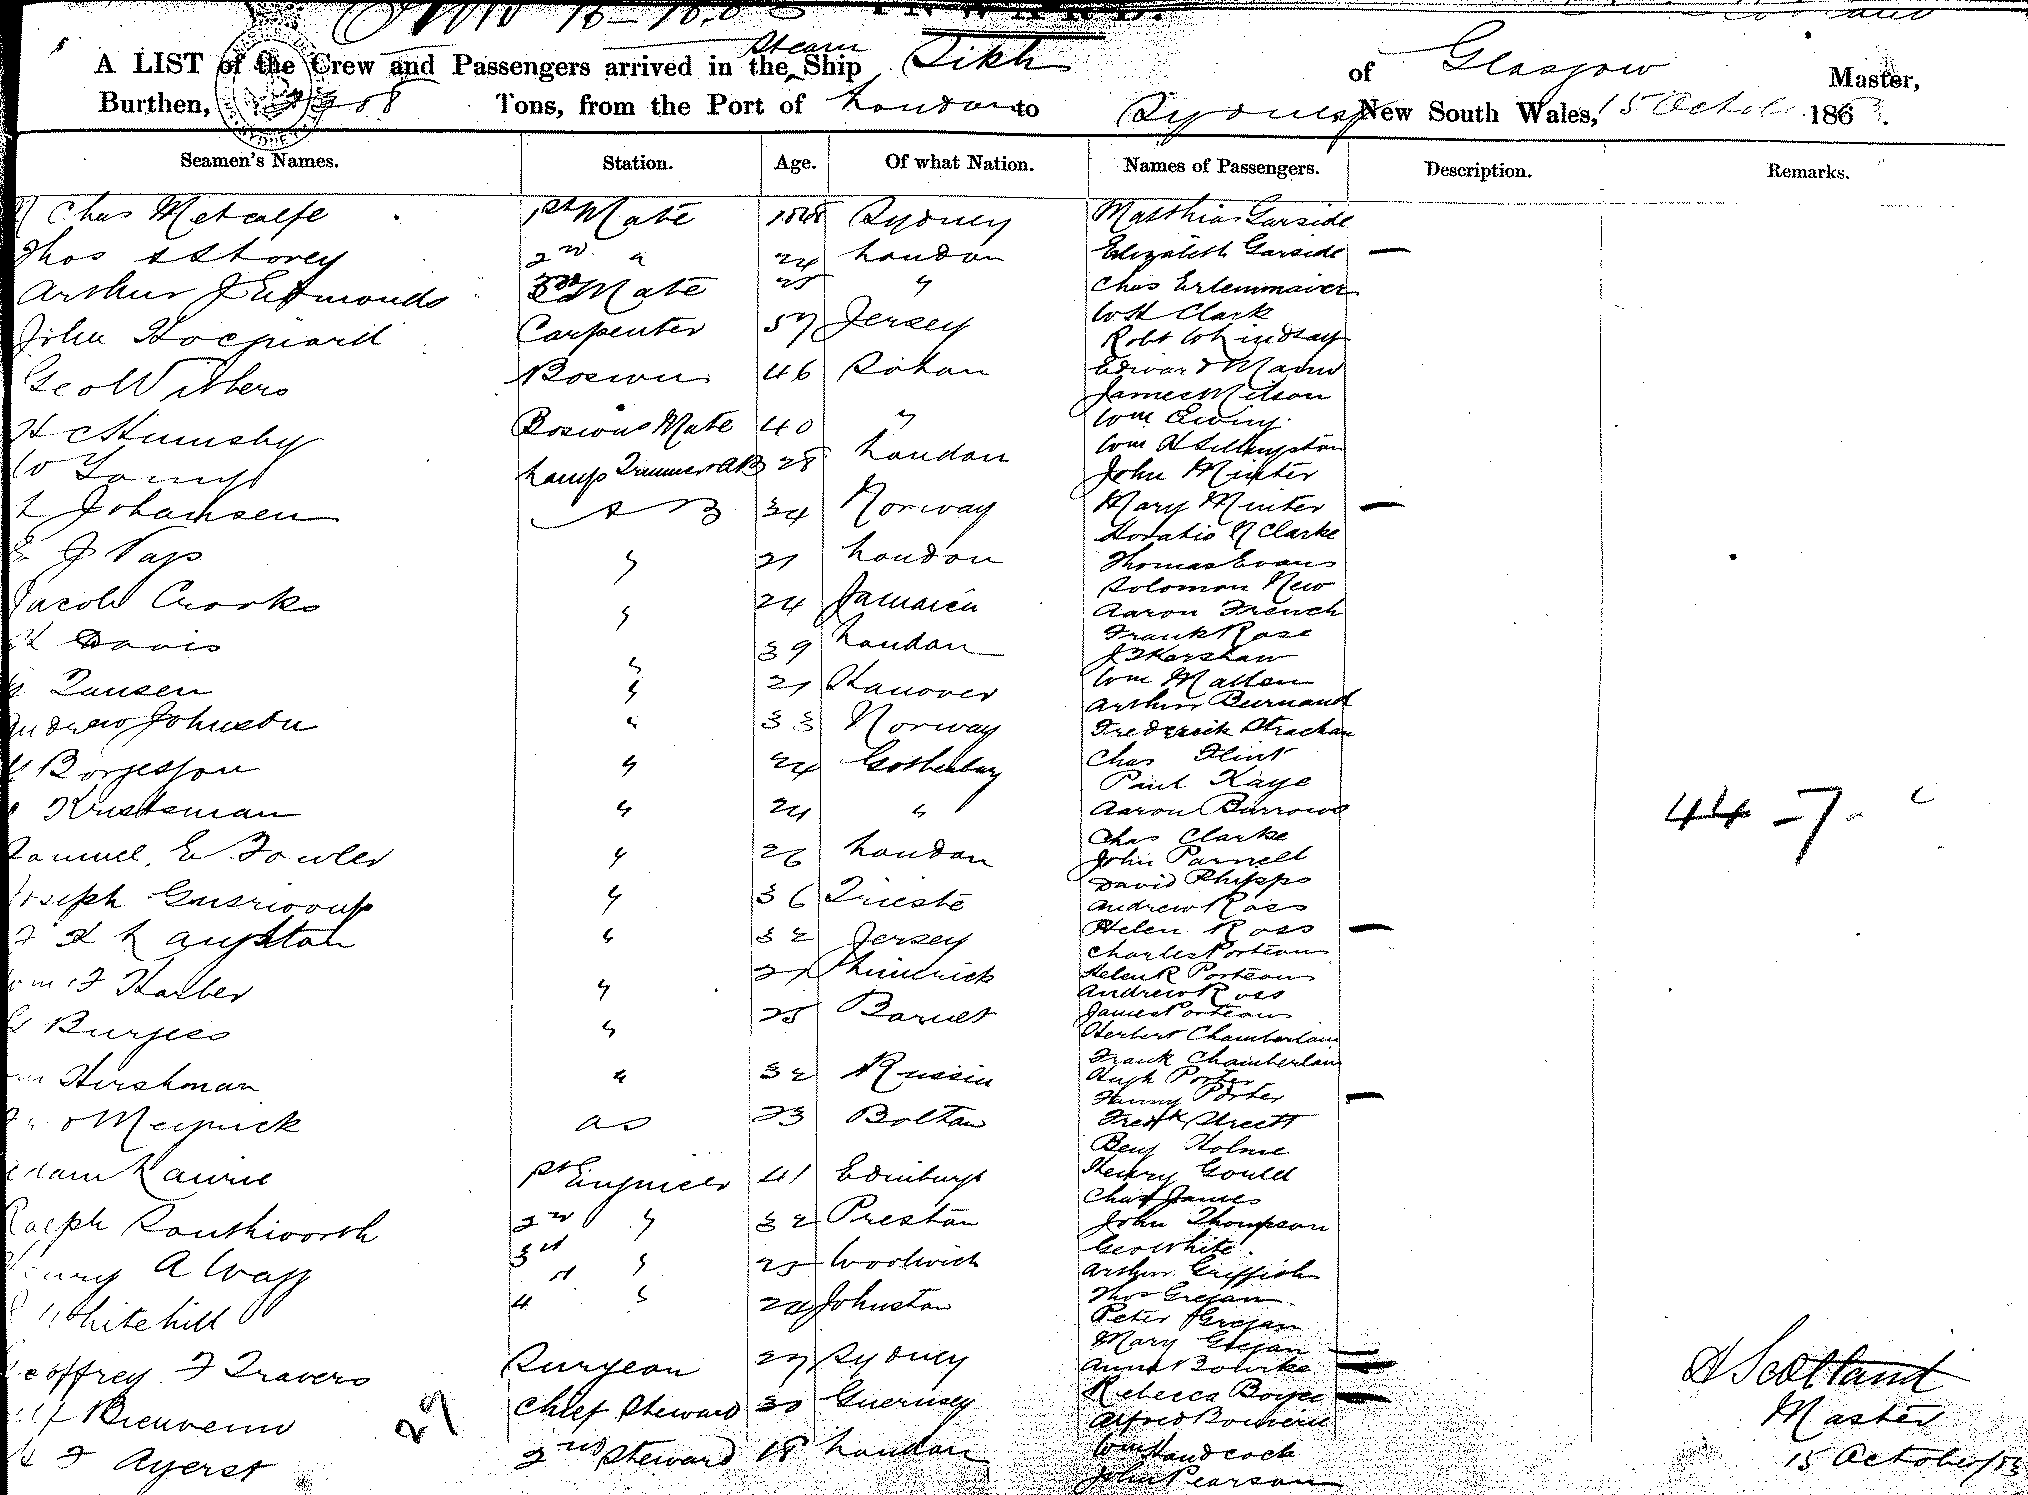 INWARD.
A LIST of the Crew and Passengers arrived in the Steam Ship Sikh of Glasgow Master,
Burthen, Tons, from the Port of London to Sydney New South Wales, 15 Octob 186
Seamen's Names. Station. Age. Of what Nation. Names of Passengers. Description. Remarks.
Chas Metcalfe 1st Mate Sydney Matthias Garside
Thos Storey 2nd " 24 London Elizabeth Garside —
Arthur J Edmonds 3rd Mate 25 " Chas Erlemmaier
John Hocquard Carpenter 57 Jersey W H Clark
Robt W Lindsay
Geo Withers Boswn 46 Edward Mann
James Nilson
H Humsby Boswns Mate 40 " Wm Ewing
W Young Lamp Trimmer AB 28 London Wm H
John Minter
Johansen A B 34 Norway Mary Minter —
Horatio N Clarke
J Vass " 21 London Thomas Evans
Solomon New
Jacob Crooks " 24 Jamaica Aaron French
Frank Rose
Davis " 39 London J Kershaw
Jansen " 21 Hanover Wm
Arthur Burnand
Andrew Johnston " 33 Norway Frederick Strachan
Borjesson " 24 Gothenburg Chas Flint
Paul Kaye
" 24 " Aaron Burrows
Chas Clarke
Samuel E Fowler " 26 London John Parnell
David Phipps
Joseph " 36 Trieste Andrew Ross
Laughton " 32 Jersey Helen Ross —
Charles Porteous
F Harber " 21 Limerick Helen R Porteous
Andrew Ross
Burgess " 25 Barnet James Porteous
Herbert Chamberlain
Frank Chamberlain
Hirshman " 32 Russia Hugh Porter
Fanny Porter —
Meyrick as 23 Bolton Fredk Street
Benj Holme
Adam Laurie 1st Engineer 41 Edinburgh Henry Gould
Chas James
Ralph Southworth 2nd " 32 Preston John Thompson
Geo White
Henry A Wagg 3rd " 25 Woolwich Arthur Griffith
Thos Grejan
Whitehill 4 " Johnston Peter Grejan
Mary Grejan —
Geoffrey F Travers Surgeon 27 Sydney Anna Bourke —
Alf Bienvenu Chief Steward 30 Guernsey Rebecca Boyce —
Alfred
F Ayerst 2nd Steward 18 London Wm Handcock
John Pearson
29
44 - 7.
A Scotland
Master
15 October/83